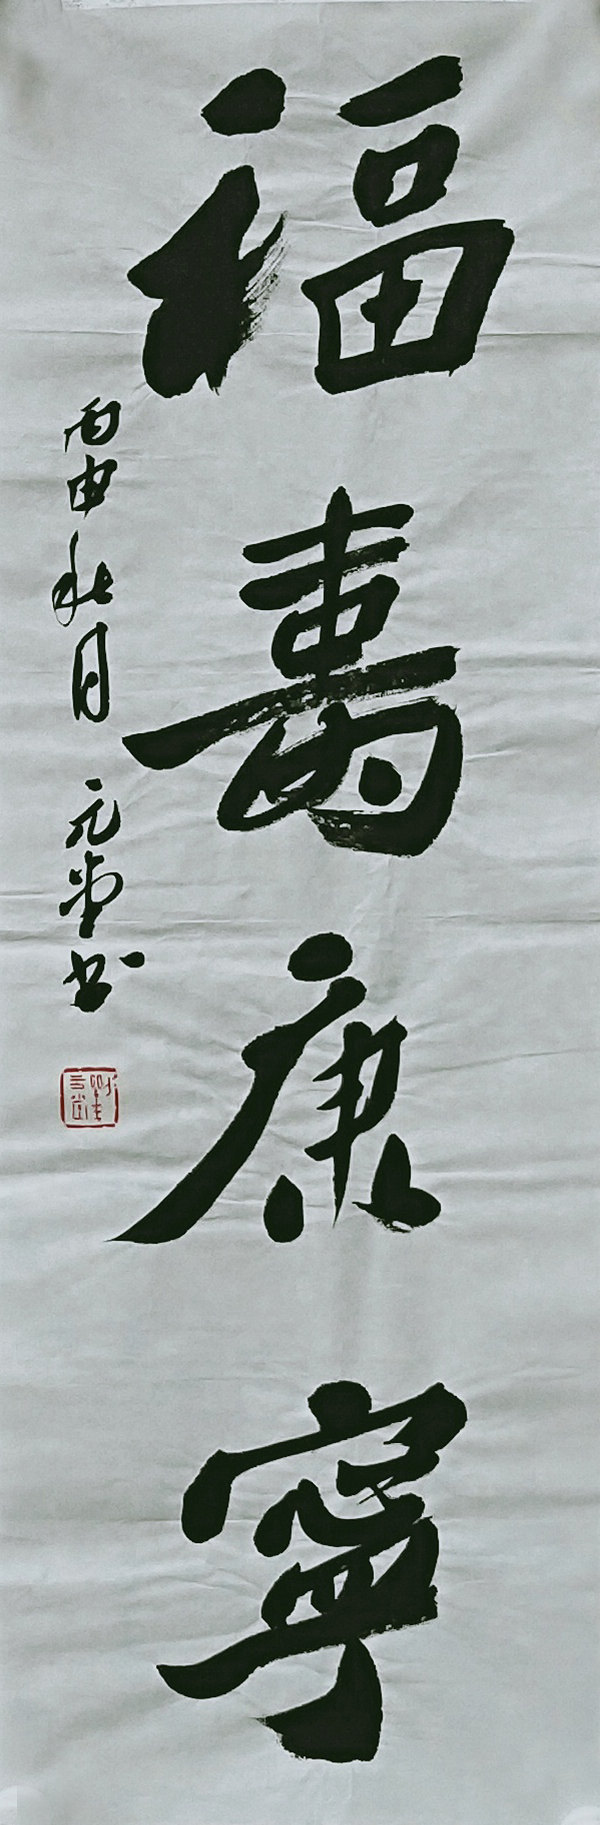 福壽康寧
丙申秋月 元堂书